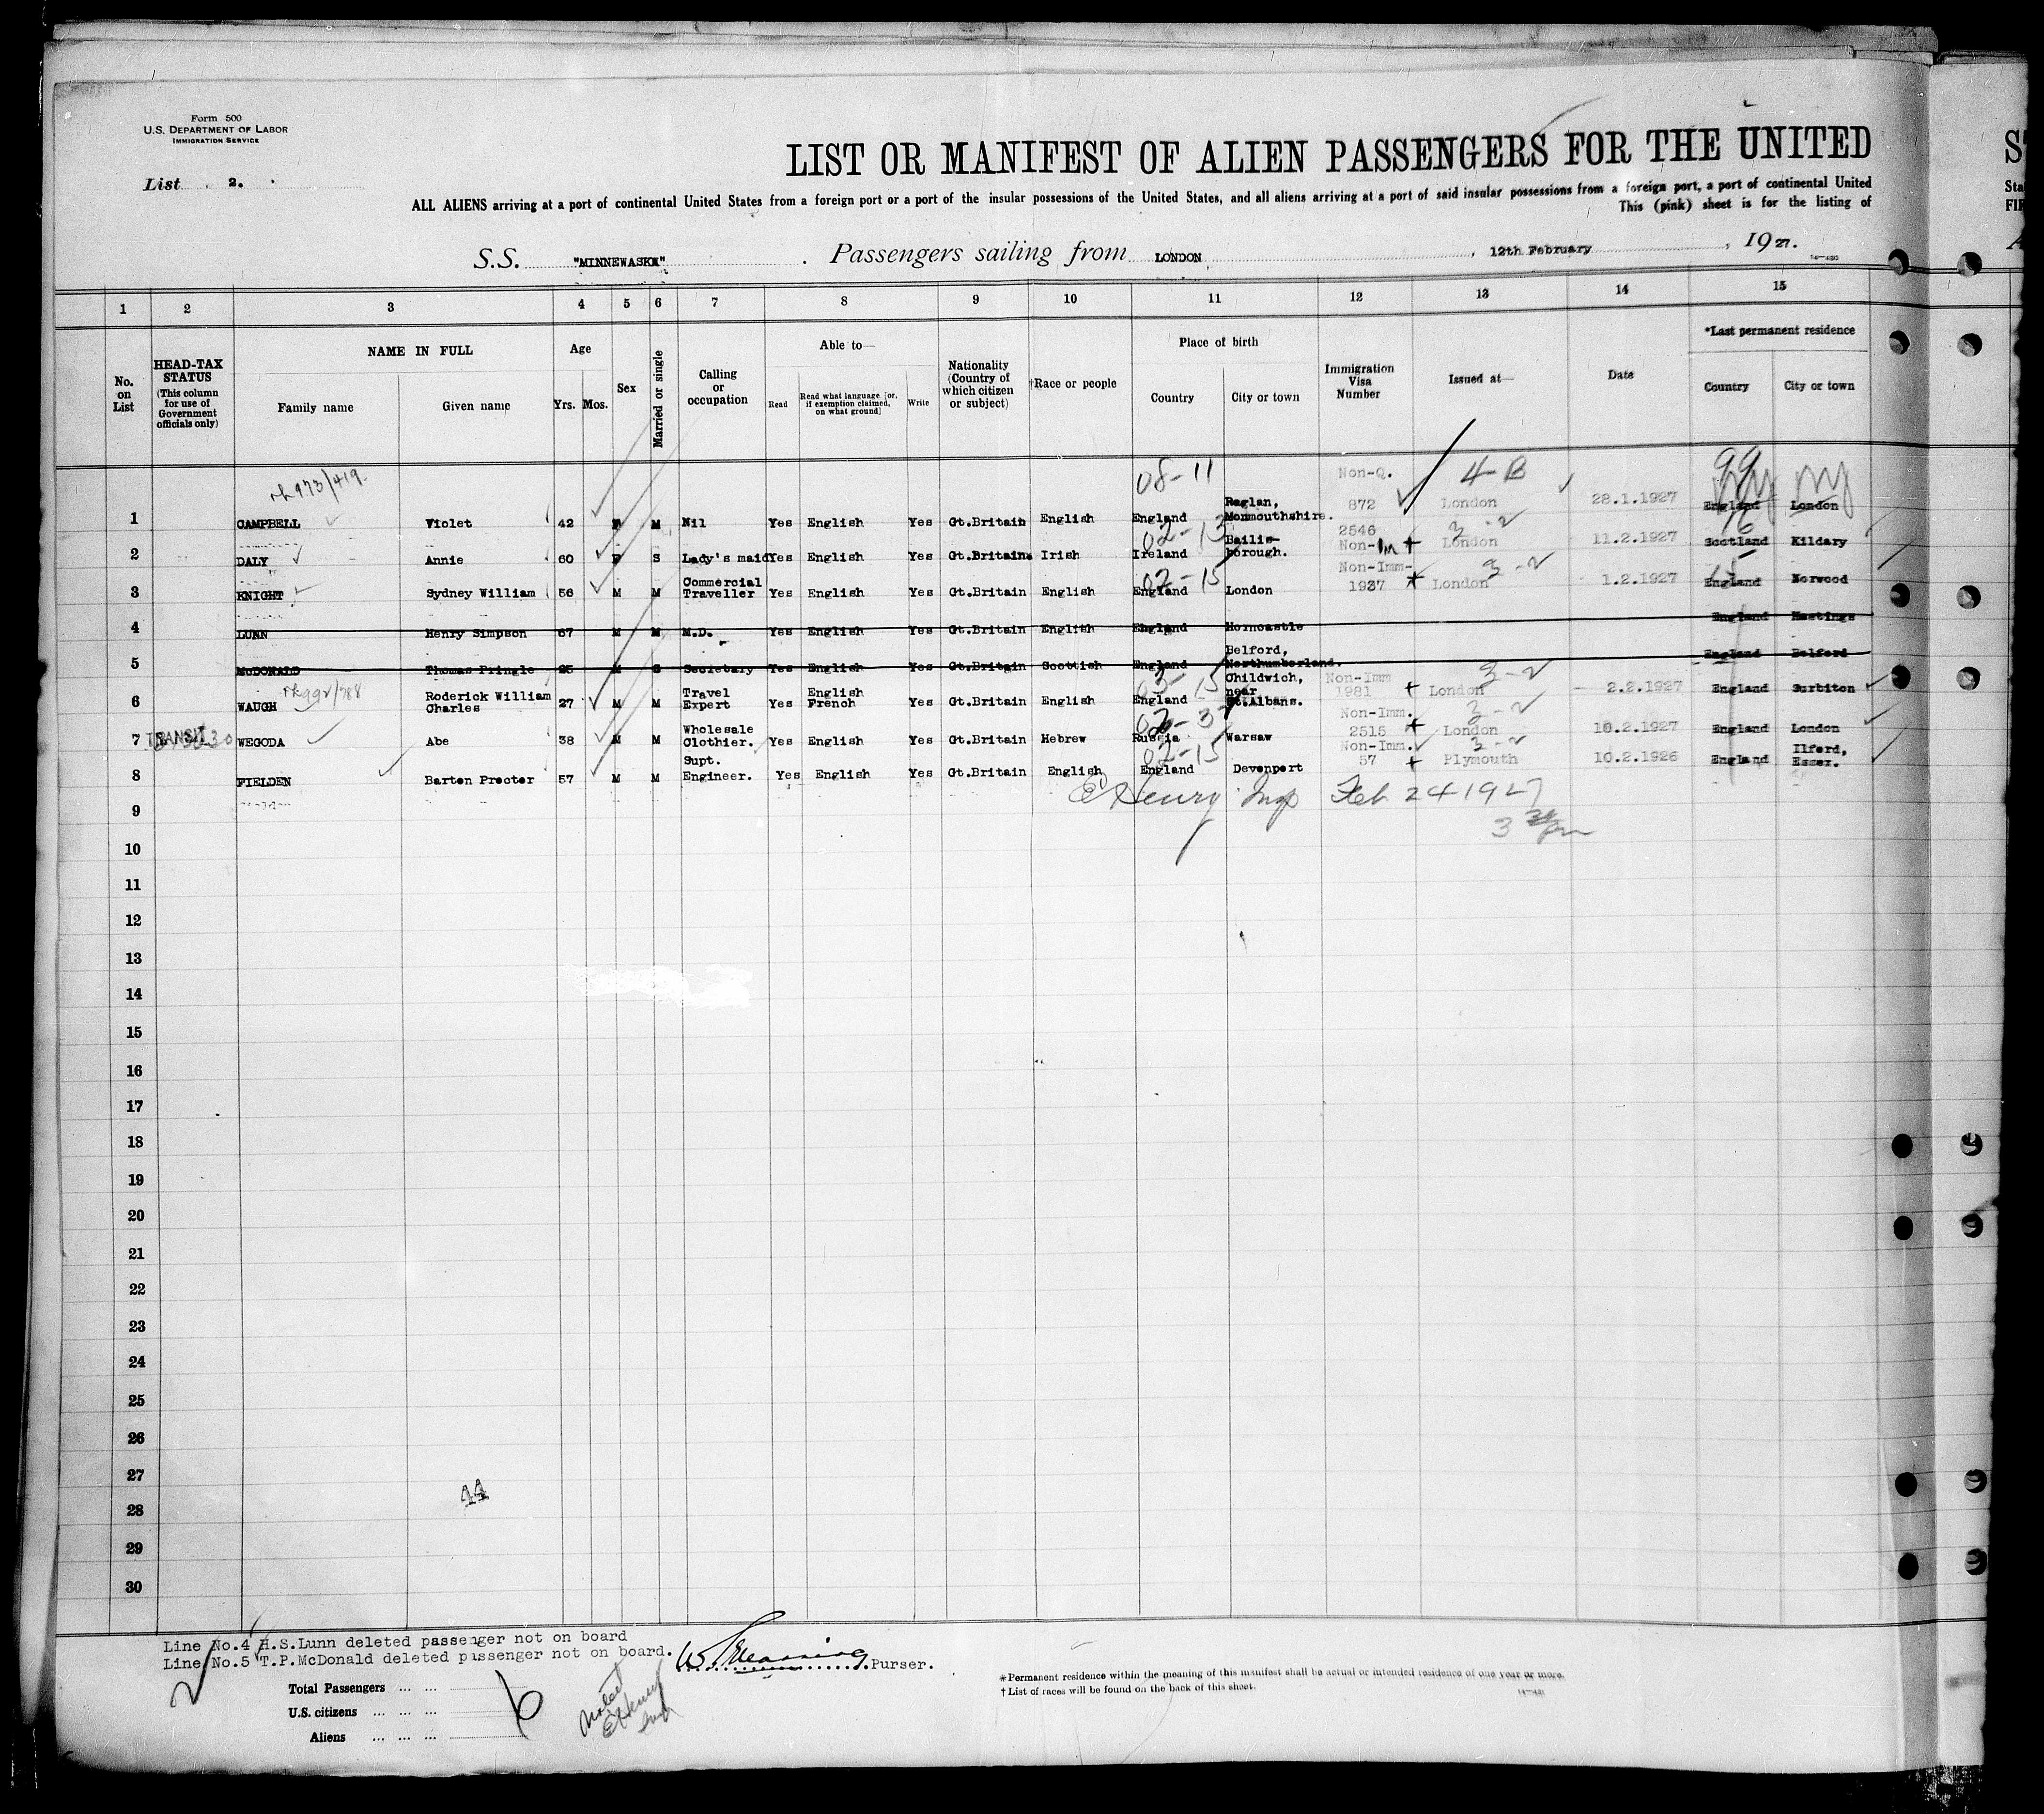 Form 500
U.S. DEPARTMENT OF LABOR
IMMIGRATION SERVICE
List 2.
LIST OR MANIFEST OF ALIEN PASSENGERS FOR THE UNITED
ALL ALIENS arriving at a port of continental United States from a foreign port or a port of the insular possessions of the United States, and all aliens arriving at a port of said insular possessions from a foreign port, a port of continental United
This (pink) sheet is for the listing of
S.S. "MINNEWASKA" . Passengers sailing from LONDON , 12th February , 1927.
1 2 3 4 5 6 7 8 9 10 11 12 13 14 15
No. on List
HEAD-TAX STATUS (This column for use of Government officials only)
NAME IN FULL
Family name Given name
Age Yrs. Mos.
Sex
Married or single
Calling or occupation
Able to—
Read Read what language [or, if exemption claimed, on what ground] Write
Nationality (Country of which citizen or subject)
†Race or people
Place of birth
Country City or town
Immigration Visa Number
Issued at—
Date
*Last permanent residence
Country City or town
973/419 08-11 Non-Q. 4-B 99
1 CAMPBELL Violet 42 F M Nil Yes English Yes Gt.Britain English England Raglan, Monmouthshire. 872 London 28.1.1927 England London
02-13 3-2 16
2 DALY Annie 60 F S Lady's maid Yes English Yes Gt.Britain. Irish Ireland Bailis-borough. 2546 Non-Im London 11.2.1927 Scotland Kildary
02-15 3-2 15
3 KNIGHT Sydney William 56 M M Commercial Traveller Yes English Yes Gt.Britain English England London Non-Imm- 1937 London 1.2.1927 England Norwood
4 LUNN Henry Simpson 67 M M M.D. Yes English Yes Gt.Britain English England Horncastle England Hastings
5 McDONALD Thomas Pringle 25 M S Secretary Yes English Yes Gt.Britain Scottish England Belford, Northumberland. England Belford
992/788 3-2
6 WAUGH Roderick William Charles 27 M M Travel Expert Yes English French Yes Gt.Britain English England Childwich, near St.Albans. Non-Imm 1981 London 2.2.1927 England Surbiton
02-37 3-2
7 TRANSIT WEGODA Abe 38 M M Wholesale Clothier. Yes English Yes Gt.Britain Hebrew Russia Warsaw Non-Imm. 2515 London 10.2.1927 England London
02-15 3-2
8 FIELDEN Barten Procter 57 M M Supt. Engineer. Yes English Yes Gt.Britain English England Devonport Non-Imm. 57 Plymouth 10.2.1926 England Ilford, Essex.
E Henry Insp Feb 24 1927
3 30 pm
9
10
11
12
13
14
15
16
17
18
19
20
21
22
23
24
25
26
27
44
28
29
30
Line No.4 H.S.Lunn deleted passenger not on board
Line No.5 T.P.McDonald deleted passenger not on board.
Purser.
Total Passengers ... ...
U.S. citizens ... ... ...
Aliens ... ... ...
6
Noted
E Henry
Insp
*Permanent residence within the meaning of this manifest shall be actual or intended residence of one year or more.
†List of races will be found on the back of this sheet.